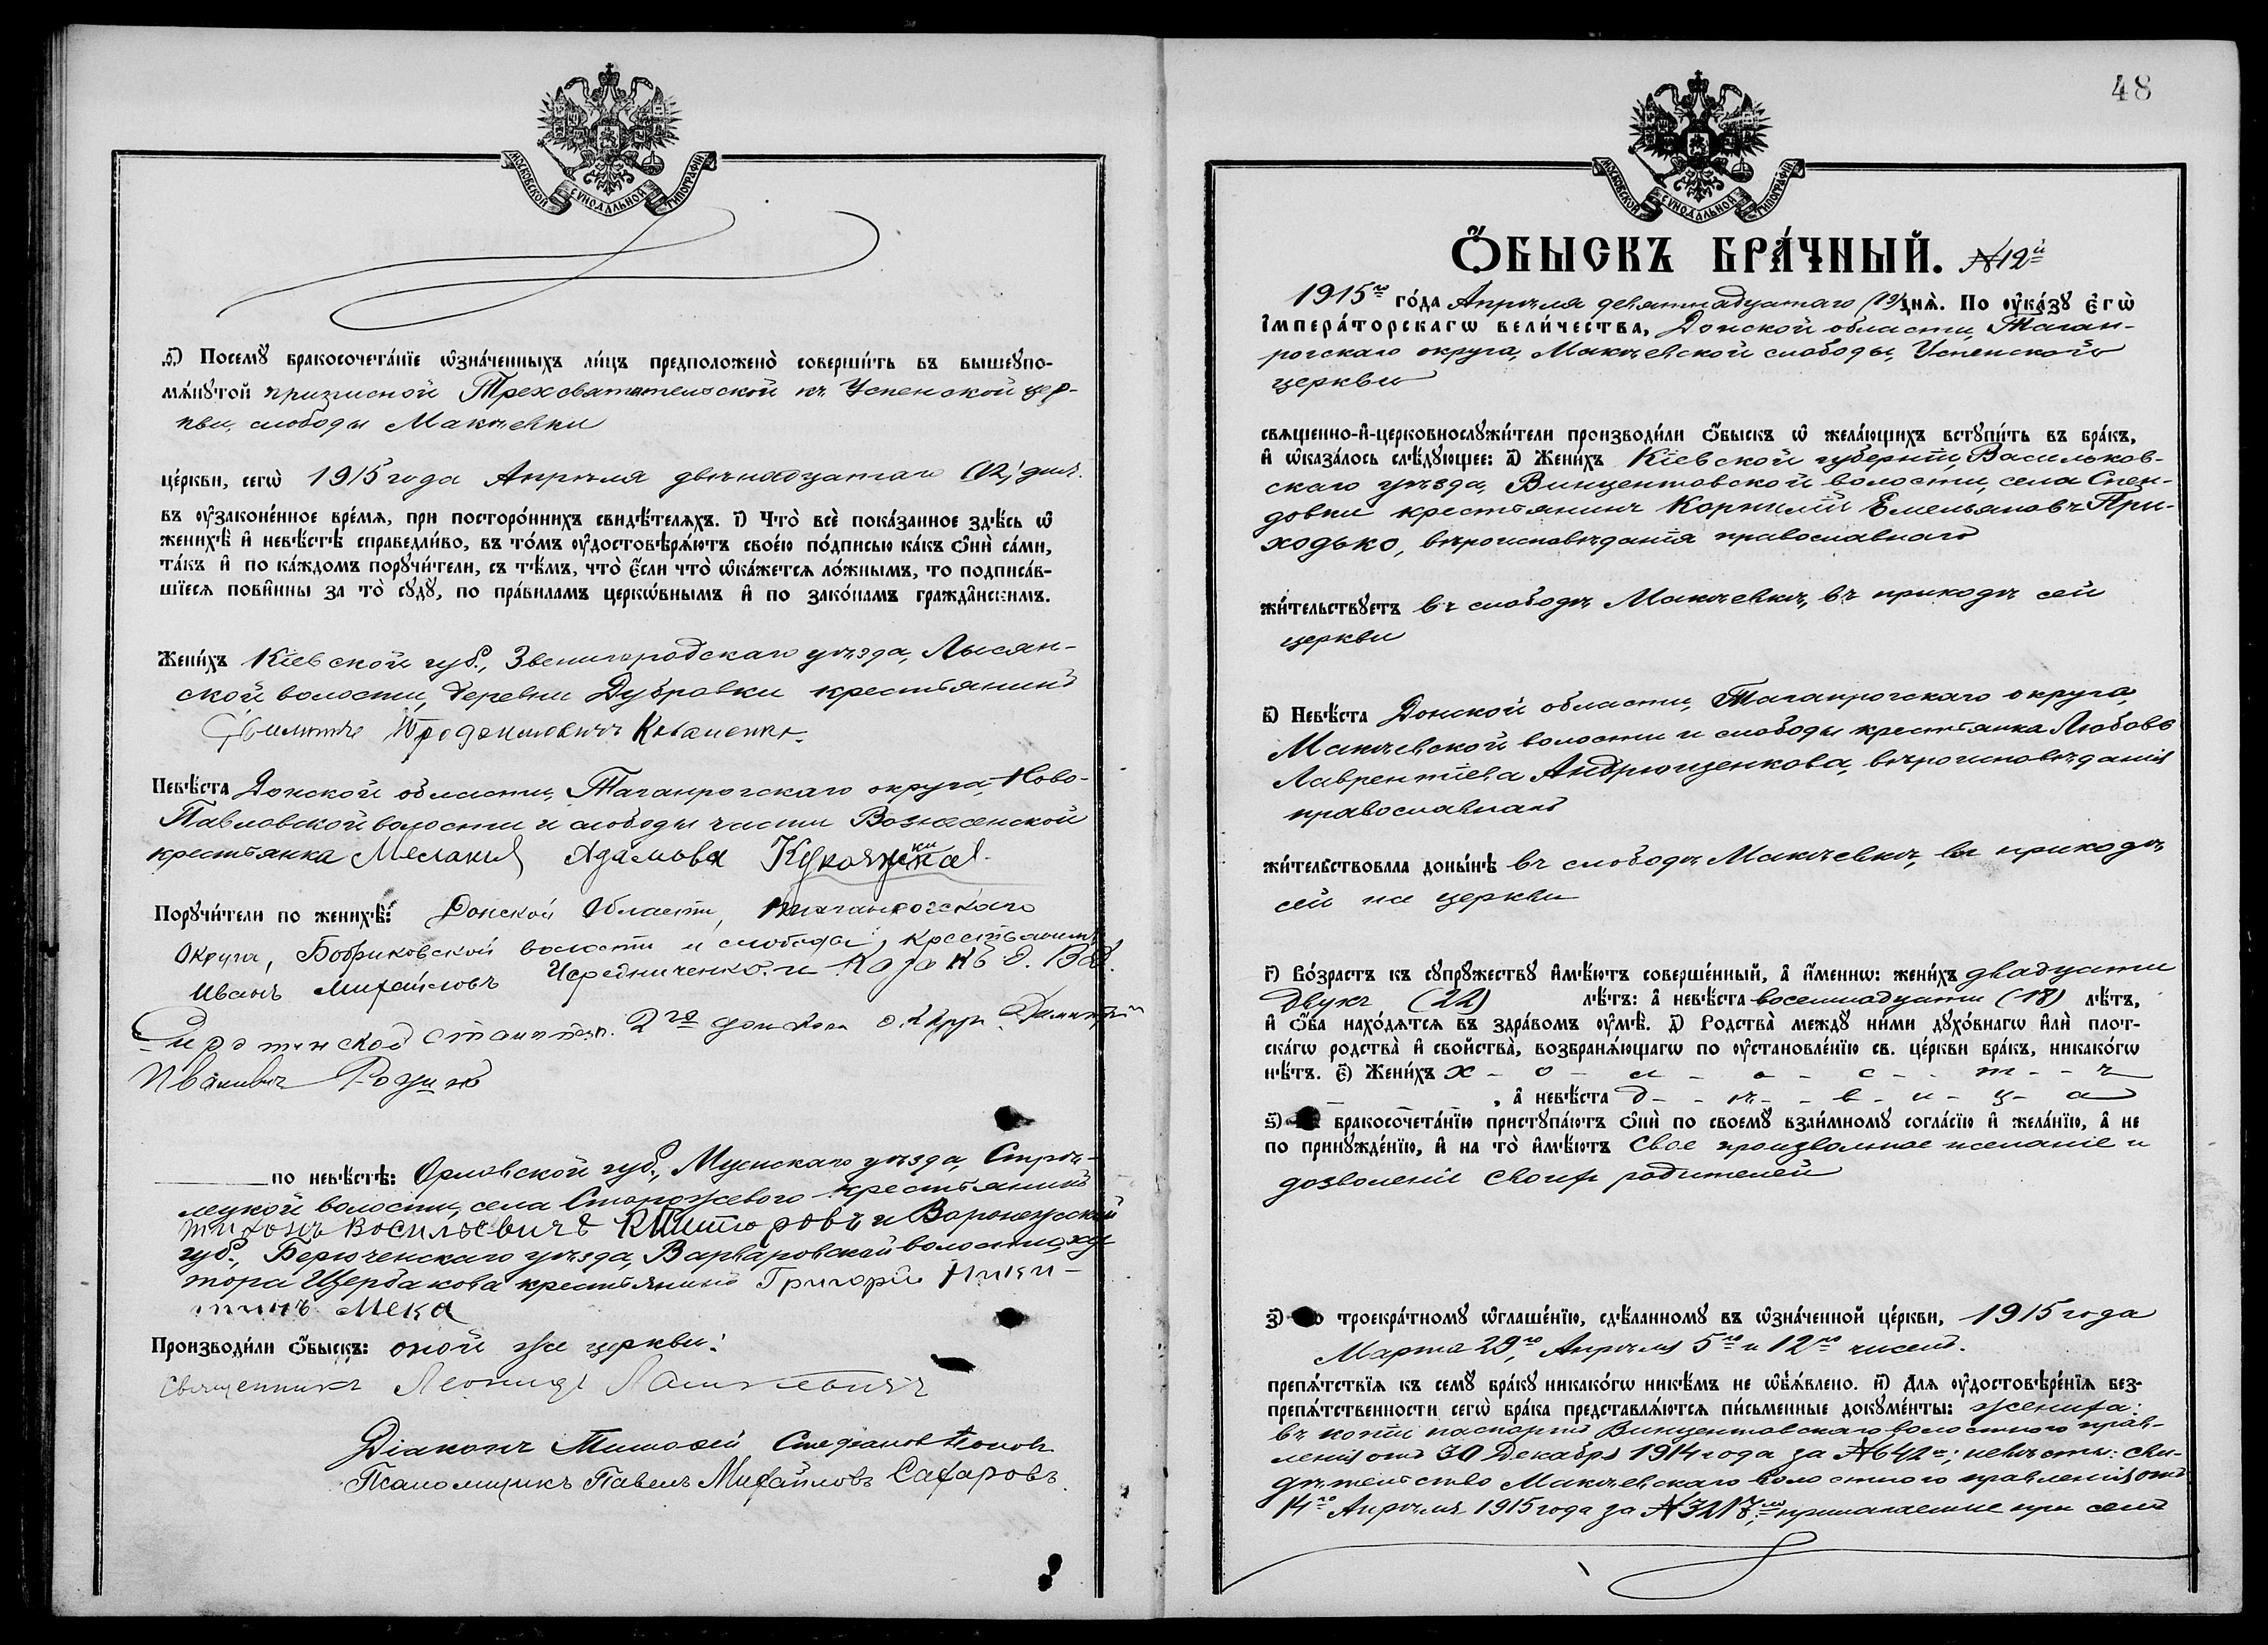 МОСКОВСКОЙ СѴНОДАЛЬНОЙ ТИПОГРАФІИ
д҃і) Посемꙋ бракосочета́нїе ѡ҆зна́ченныхъ ли́цъ предположено̀ соверши́ть въ вышеꙋпо-
мѧ́нꙋтой приписной Трехсвятительской къ Успенской цер-
кви, слободы Макѣевки
це́ркви, сегѡ̀ 1915 года Апрѣля двѣнадцатаго (12) дня.
въ ᲂу҆законе́нное вре́мѧ, при посторо́ннихъ свидѣ́телѧхъ. і҃) Что̀ всѐ пока́занное здѣ́сь ѡ҆
женихѣ̀ и҆ невѣ́стѣ справедли́во, въ то́мъ ᲂу҆достовѣрѧ́ютъ свое́ю по́дписью ка́къ ѻ҆нѝ са́ми,
та́къ и҆ по ка́ждомъ порꙋчи́тели, съ тѣ́мъ, что̀ є҆́сли что̀ ѡ҆ка́жетсѧ ло́жнымъ, то подписа́в-
шїесѧ пови́нны за то̀ сꙋдꙋ̀, по пра́виламъ церкѡ́внымъ и҆ по зако́намъ гражда́нскимъ.
Жени́хъ Кіевской губ., Звенигородскаго уѣзда, Лысян-
ской волости, деревни Дубровки крестьянинъ
Невѣ́ста Донской области, Таганрогскаго округа, Ново-
Павловской волости и слободы части Вознесенской
крестьянка Меланія Адамова
Порꙋчи́тели по женихѣ̀: Донской Области, Таганрогскаго
Округа, Бобриковской волости и слободы, крестьянинъ
Иванъ Михайловъ Чередниченко и Казакъ О. В. Д.
станицы 2го донского округ. Дмитрій
Ивановичъ
по невѣ́стѣ: Орловской губ., Мценскаго уѣзда, Стрѣ-
лецкой волости, села Сторожевого крестьянинъ
Тихонъ Васильевичъ и Воронежской
губ., Бирюченскаго уѣзда, Варваровской волости, ху-
тора Щербакова крестьянинъ Григорій Ники-
тинъ Мека
Производи́ли ѻ҆́быскъ: оной же церкви:
Священникъ Леонидъ
Діаконъ Тимоѳей Стефановъ Поповъ
Псаломщикъ Павелъ Михайловъ Сахаровъ.
48
МОСКОВСКОЙ СѴНОДАЛЬНОЙ ТИПОГРАФІИ
Ѻ҆́БЫСКЪ БРА́ЧНЫЙ. №12й
1915го го́да Апрѣля девятнадцатаго (19) днѧ̀. По ᲂу҆ка́зꙋ є҆гѡ̀
і҆мпера́торскагѡ вели́чества, Донской области, Таган-
рогскаго округа, Макѣевской слободы, Успенской
церкви
свѧщенно-и҆-церковнослꙋжи́тели производи́ли ѻ҆́быскъ ѡ҆ жела́ющихъ встꙋпи́ть въ бра́къ,
и҆ ѡ҆каза́лось слѣ́дꙋющее: а҃) Жени́хъ Кіевской губерніи, Васильков-
скаго уѣзда, Винцентовской волости, села
крестьянинъ Корнилій Емельяновъ При-
ходько, вѣроисповѣданія православнаго
жи́тельствꙋетъ въ слободѣ Макѣевкѣ, въ приходѣ сей
церкви
в҃) Невѣ́ста Донской области, Таганрогскаго округа,
Макѣевской волости и слободы крестьянка Любовь
Лаврентіева Андрющенкова, вѣроисповѣданія
православнаго
жи́тельствовала донынѣ въ слободѣ Макѣевкѣ, въ приходѣ
сей же церкви
г҃) Во́зрастъ къ сꙋпрꙋ́жествꙋ и҆мѣ́ютъ соверше́нный, а҆ и҆́меннѡ: жени́хъ двадцати
двухъ (22) лѣ́тъ: а҆ невѣ́ста восемнадцати (18) лѣ́тъ,
и҆ ѻ҆́ба нахо́дѧтсѧ въ здра́вомъ ᲂу҆мѣ̀. д҃) Родства̀ междꙋ̀ ни́ми дꙋхо́внагѡ и҆лѝ плот-
ска́гѡ родства̀ и҆ свойства̀, возбранѧ́ющагѡ по ᲂу҆становле́нїю св. це́ркви бра́къ, никако́гѡ
нѣ́тъ. є҃) Жени́хъ х - о - л - о - с - т - ъ
, а҆ невѣ́ста д - ѣ - в - и - ц - а
ѕ҃) бракосочета́нїю пристꙋпа́ютъ ѻ҆нѝ по своемꙋ̀ взаи́мномꙋ согла́сїю и҆ жела́нїю, а҆ не
по принꙋжде́нїю, и҆ на то̀ и҆мѣ́ютъ свое произвольное желаніе и
дозволеніе своихъ родителей
з҃) троекра́тномꙋ ѡ҆глаше́нїю, сдѣ́ланномꙋ въ ѡ҆зна́ченной це́ркви, 1915 года
Марта 29го, Апрѣля 5го и 12го чиселъ.
препѧ́тствїѧ къ семꙋ̀ бра́кꙋ никако́гѡ никѣ́мъ не ѡ҆б̾ѧ́влено. и҃) Длѧ ᲂу҆достовѣре́нїѧ без-
препѧ́тственности сегѡ̀ бра́ка представлѧ́ютсѧ пи́сьменные докꙋме́нты: жениха:
въ копіи паспортъ Винцентовскаго волостного прав-
ленія отъ 30 Декабря 1914 года за №642; невѣсты: сви-
дѣтельство Макѣевскаго волостного правленія отъ
14го Апрѣля 1915 года за прилагаемые при семъ